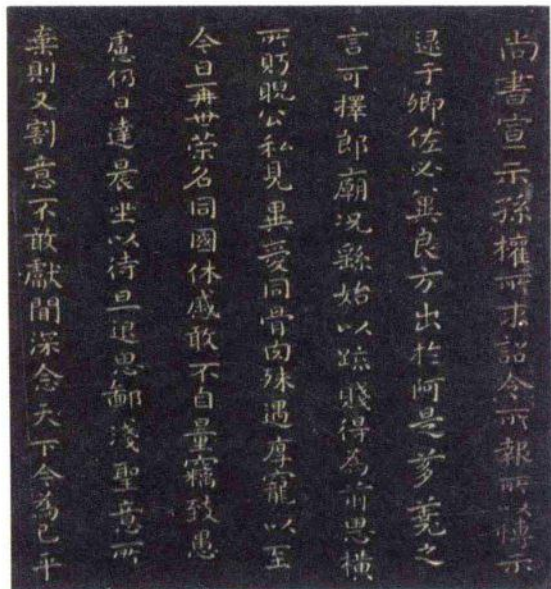 尚書宣示孫權所求詔令所報所以博示
逮于卿佐必冀良方出於阿是芻蕘之
言可擇郎廟況繇始以踈賤得為前恩橫
所貯睨公私見異愛同骨肉殊遇厚寵以至
今日再世榮名同國休慼敢不自量竊致愚
慮仍日達晨坐以待旦退思鄙淺聖意所
棄則又割意不敢獻聞深念天下今為已平